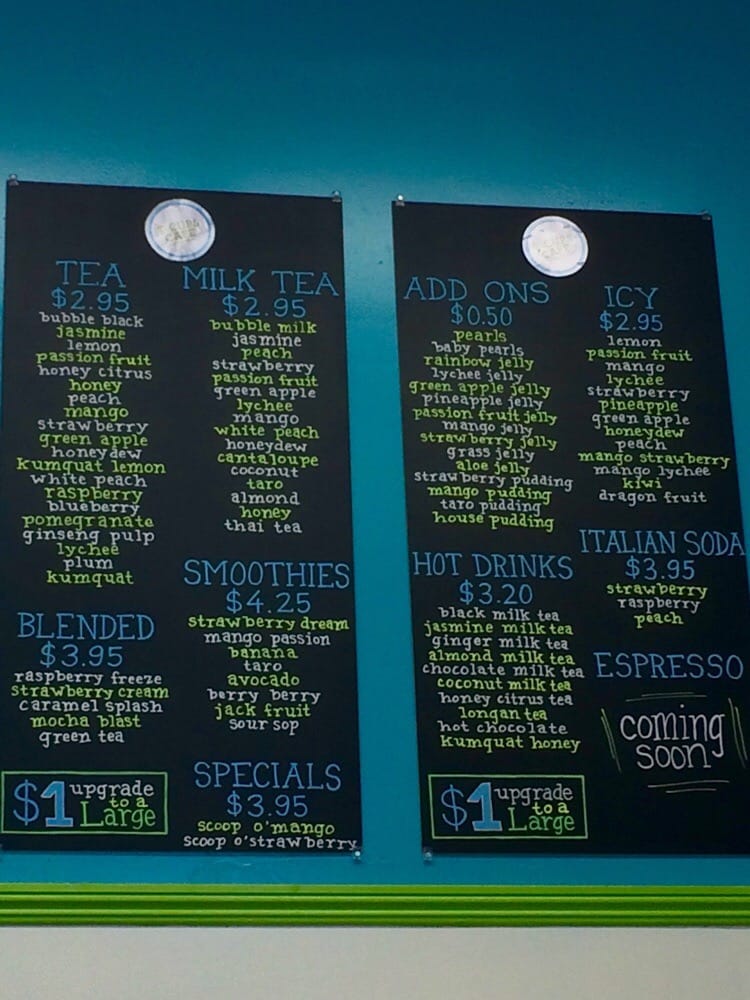 TEA
$2.95
bubble black
jasmine
lemon
passion fruit
honey citrus
honey
peach
mango
strawberry
green apple
honeydew
kumquat lemon
white peach
raspberry
blueberry
pomegranate
ginseng pulp
lychee
plum
kumquat
BLENDED
$3.95
raspberry freeze
strawberry cream
caramel splash
mocha blast
green tea
$1 upgrade
to a
Large
MILK TEA
$2.95
bubble milk
jasmine
peach
strawberry
passion fruit
green apple
lychee
mango
white peach
honeydew
cantaloupe
coconut
taro
almond
honey
thai tea
SMOOTHIES
$4.25
strawberry dream
mango passion
banana
taro
avocado
berry berry
jack fruit
sour sop
SPECIALS
$3.95
scoop o'mango
scoop o'strawberry
ADD ONS
$0.50
pearls
baby pearls
rainbow jelly
lychee jelly
green apple jelly
pineapple jelly
passion fruit jelly
mango jelly
strawberry jelly
grass jelly
aloe jelly
strawberry pudding
mango pudding
taro pudding
house pudding
HOT DRINKS
$3.20
black milk tea
jasmine milk tea
ginger milk tea
almond milk tea
chocolate milk tea
coconut milk tea
honey citrus tea
longan tea
hot chocolate
kumquat honey
$1 upgrade
to a
Large
ICY
$2.95
lemon
passion fruit
mango
lychee
strawberry
pineapple
green apple
honeydew
peach
mango strawberry
mango lychee
kiwi
dragon fruit
ITALIAN SODA
$3.95
strawberry
raspberry
peach
ESPRESSO
coming
soon